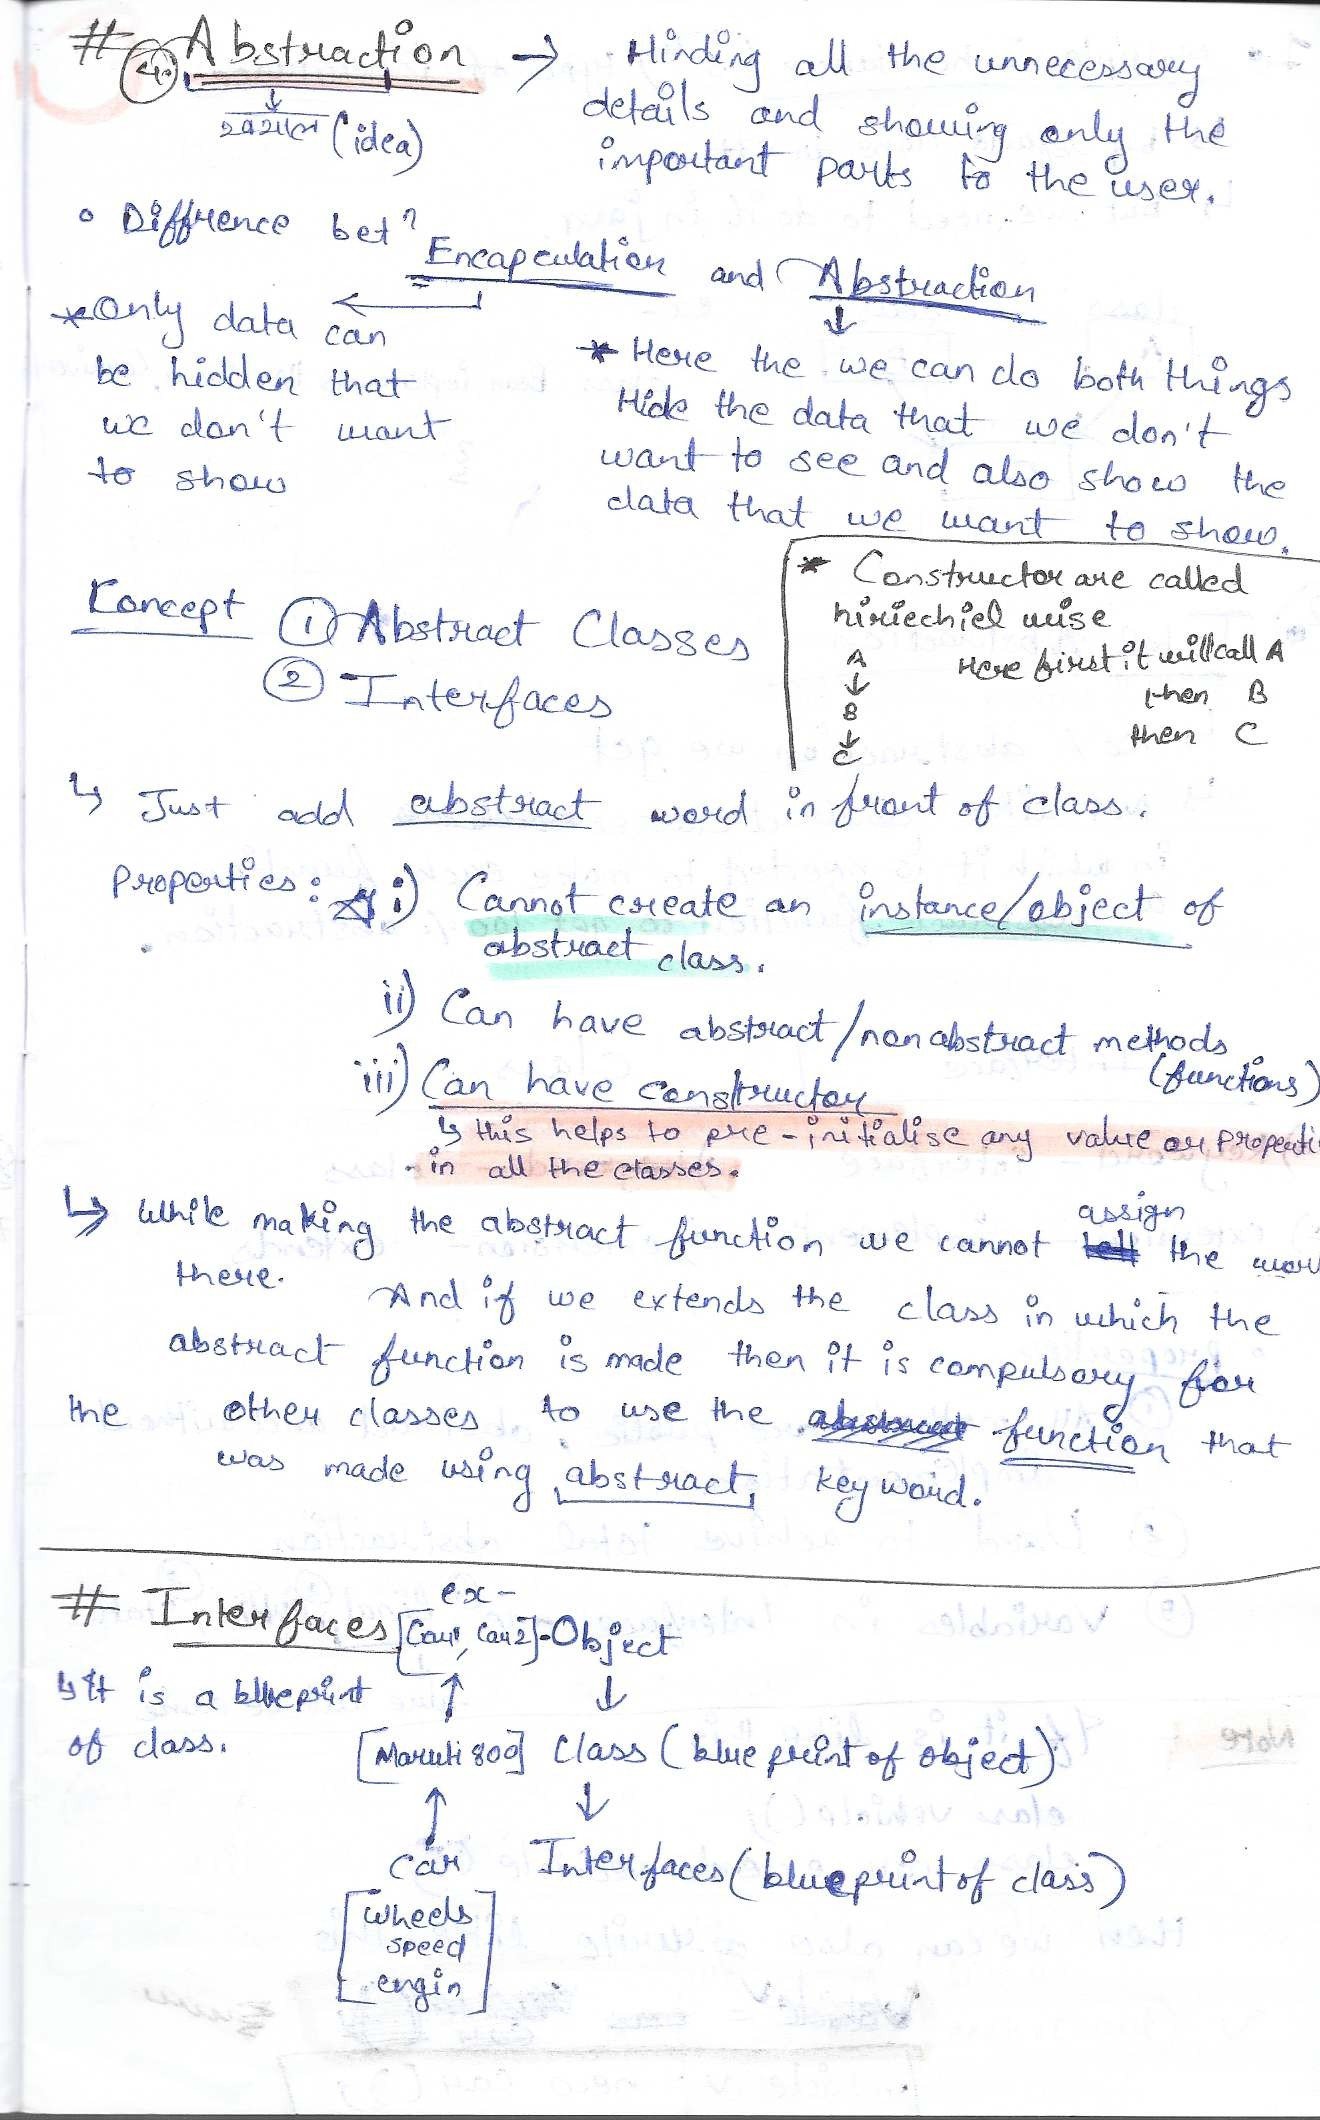 # 4. Abstraction → Hinding all the unnecessary
details and showing only the
important parts to the user.
(idea)
• Diffrence betn Encapculation and Abstraction
* Only data can
be hidden that
we don't want
to show
* Here the we can do both things
Hide the data that we don't
want to see and also show the
data that we want to show.
* Constructor are called
hiriechiel wise
A
↓
B
↓
C
Here first it will call A
then B
then C
Concept ① Abstract Classes
② Interfaces
↳ Just add abstract word in front of class.
Properties: i) Cannot create an instance/object of
abstract class.
ii) Can have abstract/non abstract methods
(functions)
iii) Can have constructor
↳ this helps to pre-initialise any value or Properti
in all the classes.
↳ While making the abstract function we cannot assign the wor
there. And if we extends the class in which the
abstract function is made then it is compulsory for
the other classes to use the function that
was made using abstract keyword.
# Interfaces
ex-
[Car1, Car2]-Object
↳ It is a blueprint
of class.
↑ ↓
[Maruti 800] Class (blue print of object)
↑ ↓
Car Interfaces (blueprint of class)
[wheels
speed
engin]